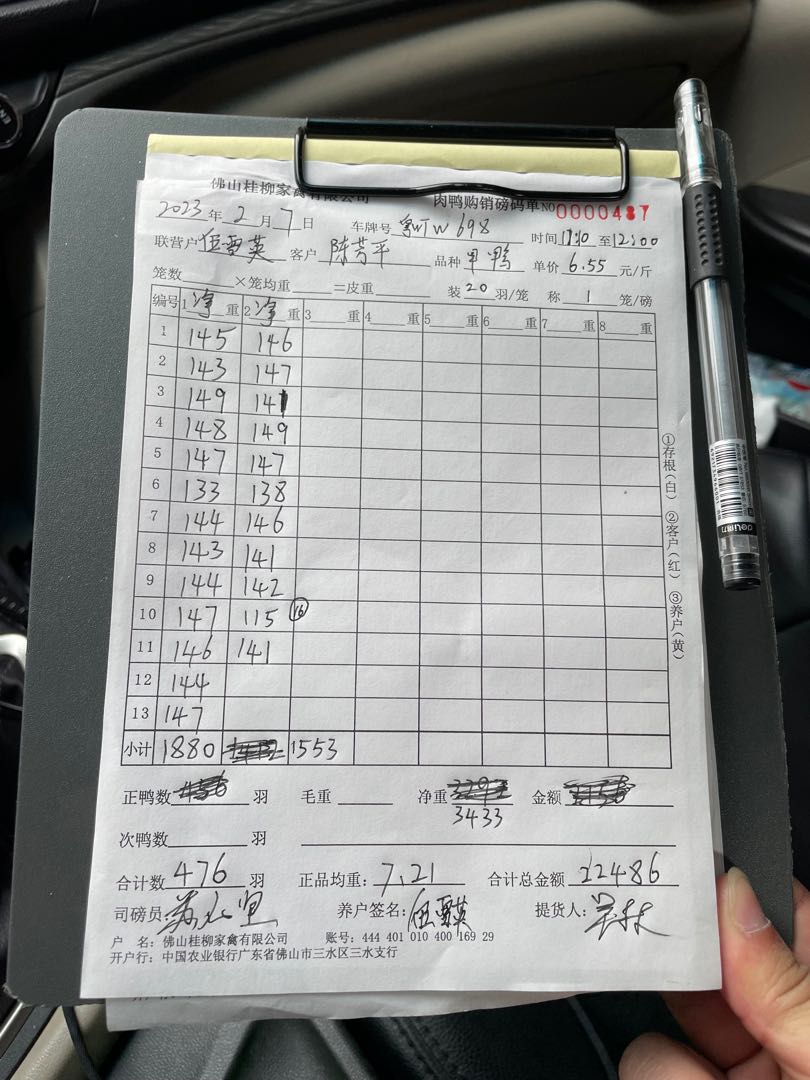 佛山桂柳家禽有限公司 肉鸭购销磅码单 NO0000487
2023年2月7日 车牌号 粤WTW698 时间11:10至12:00
联营户伍雪英 客户 陈芳平 品种 甲鸭 单价 6.55 元/斤
笼数 ×笼均重 =皮重 装20羽/笼 称 1 笼/磅
编号 1净重 2净重 3 重 4 重 5 重 6 重 7 重 8 重
1 145 146
2 143 147
3 149 141
4 148 149
5 147 147
6 133 138
7 144 146
8 143 141
9 144 142
10 147 115 16
11 146 141
12 144
13 147
小计 1880 1553
①存根(白) ②客户(红) ③养户(黄)
正鸭数 羽 毛重 净重 金额
3433
次鸭数 羽
合计数 476 羽 正品均重: 7.21 合计总金额 22486
司磅员: 养户签名: 伍雪英 提货人:
户 名: 佛山桂柳家禽有限公司 账号: 444 401 010 400 169 29
开户行: 中国农业银行广东省佛山市三水区三水支行
deli